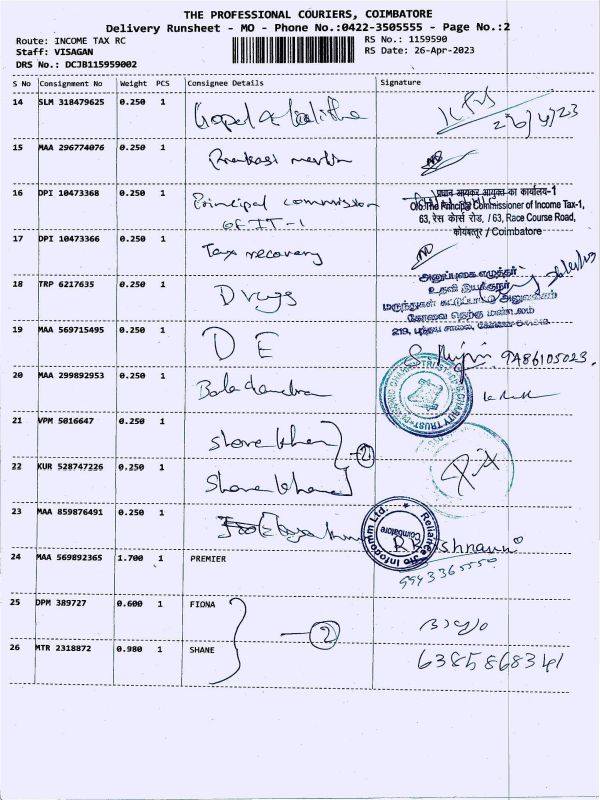 THE PROFESSIONAL COURIERS, COIMBATORE
Delivery Runsheet - MO - Phone No.:0422-3505555 - Page No.:2
Route: INCOME TAX RC
RS No.: 1159590
Staff: VISAGAN
RS Date: 26-Apr-2023
DRS No.: DCJB115959002
S No Consignment No Weight PCS Consignee Details Signature
14 SLM 318479625 0.250 1
26/4/23
15 MAA 296774076 0.250 1
16 DPI 10473368 0.250 1 Principal commission
of IT-1
प्रधान आयकर आयुक्त का कार्यालय-1
O/o.The Principal Commissioner of Income Tax-1,
63, रेस कोर्स रोड, / 63, Race Course Road,
कोयंबत्तूर / Coimbatore
17 DPI 10473366 0.250 1 Tax recovery
18 TRP 6217635 0.250 1 Drugs
அனுப்புகை எழுத்தர்
உதவி இயக்குநர்
மருந்துகள் கட்டுப்பாட்டு அலுவலகம்
கோவை தெற்கு மண்டலம்
219, பந்தய சாலை,
19 MAA 569715495 0.250 1 D E
9486105023
20 MAA 299892953 0.250 1 Balachandra
CHARITY TRUST
21 VPM 5016647 0.250 1 Shore khan
2
22 KUR 528747226 0.250 1
23 MAA 859876491 0.250 1
Reliance Jio Infocomm Ltd.
Coimbatore
24 MAA 569892365 1.700 1 PREMIER
9943365550
25 DPM 389727 0.600 1 FIONA
2
26 MTR 2318872 0.980 1 SHANE
6385868341